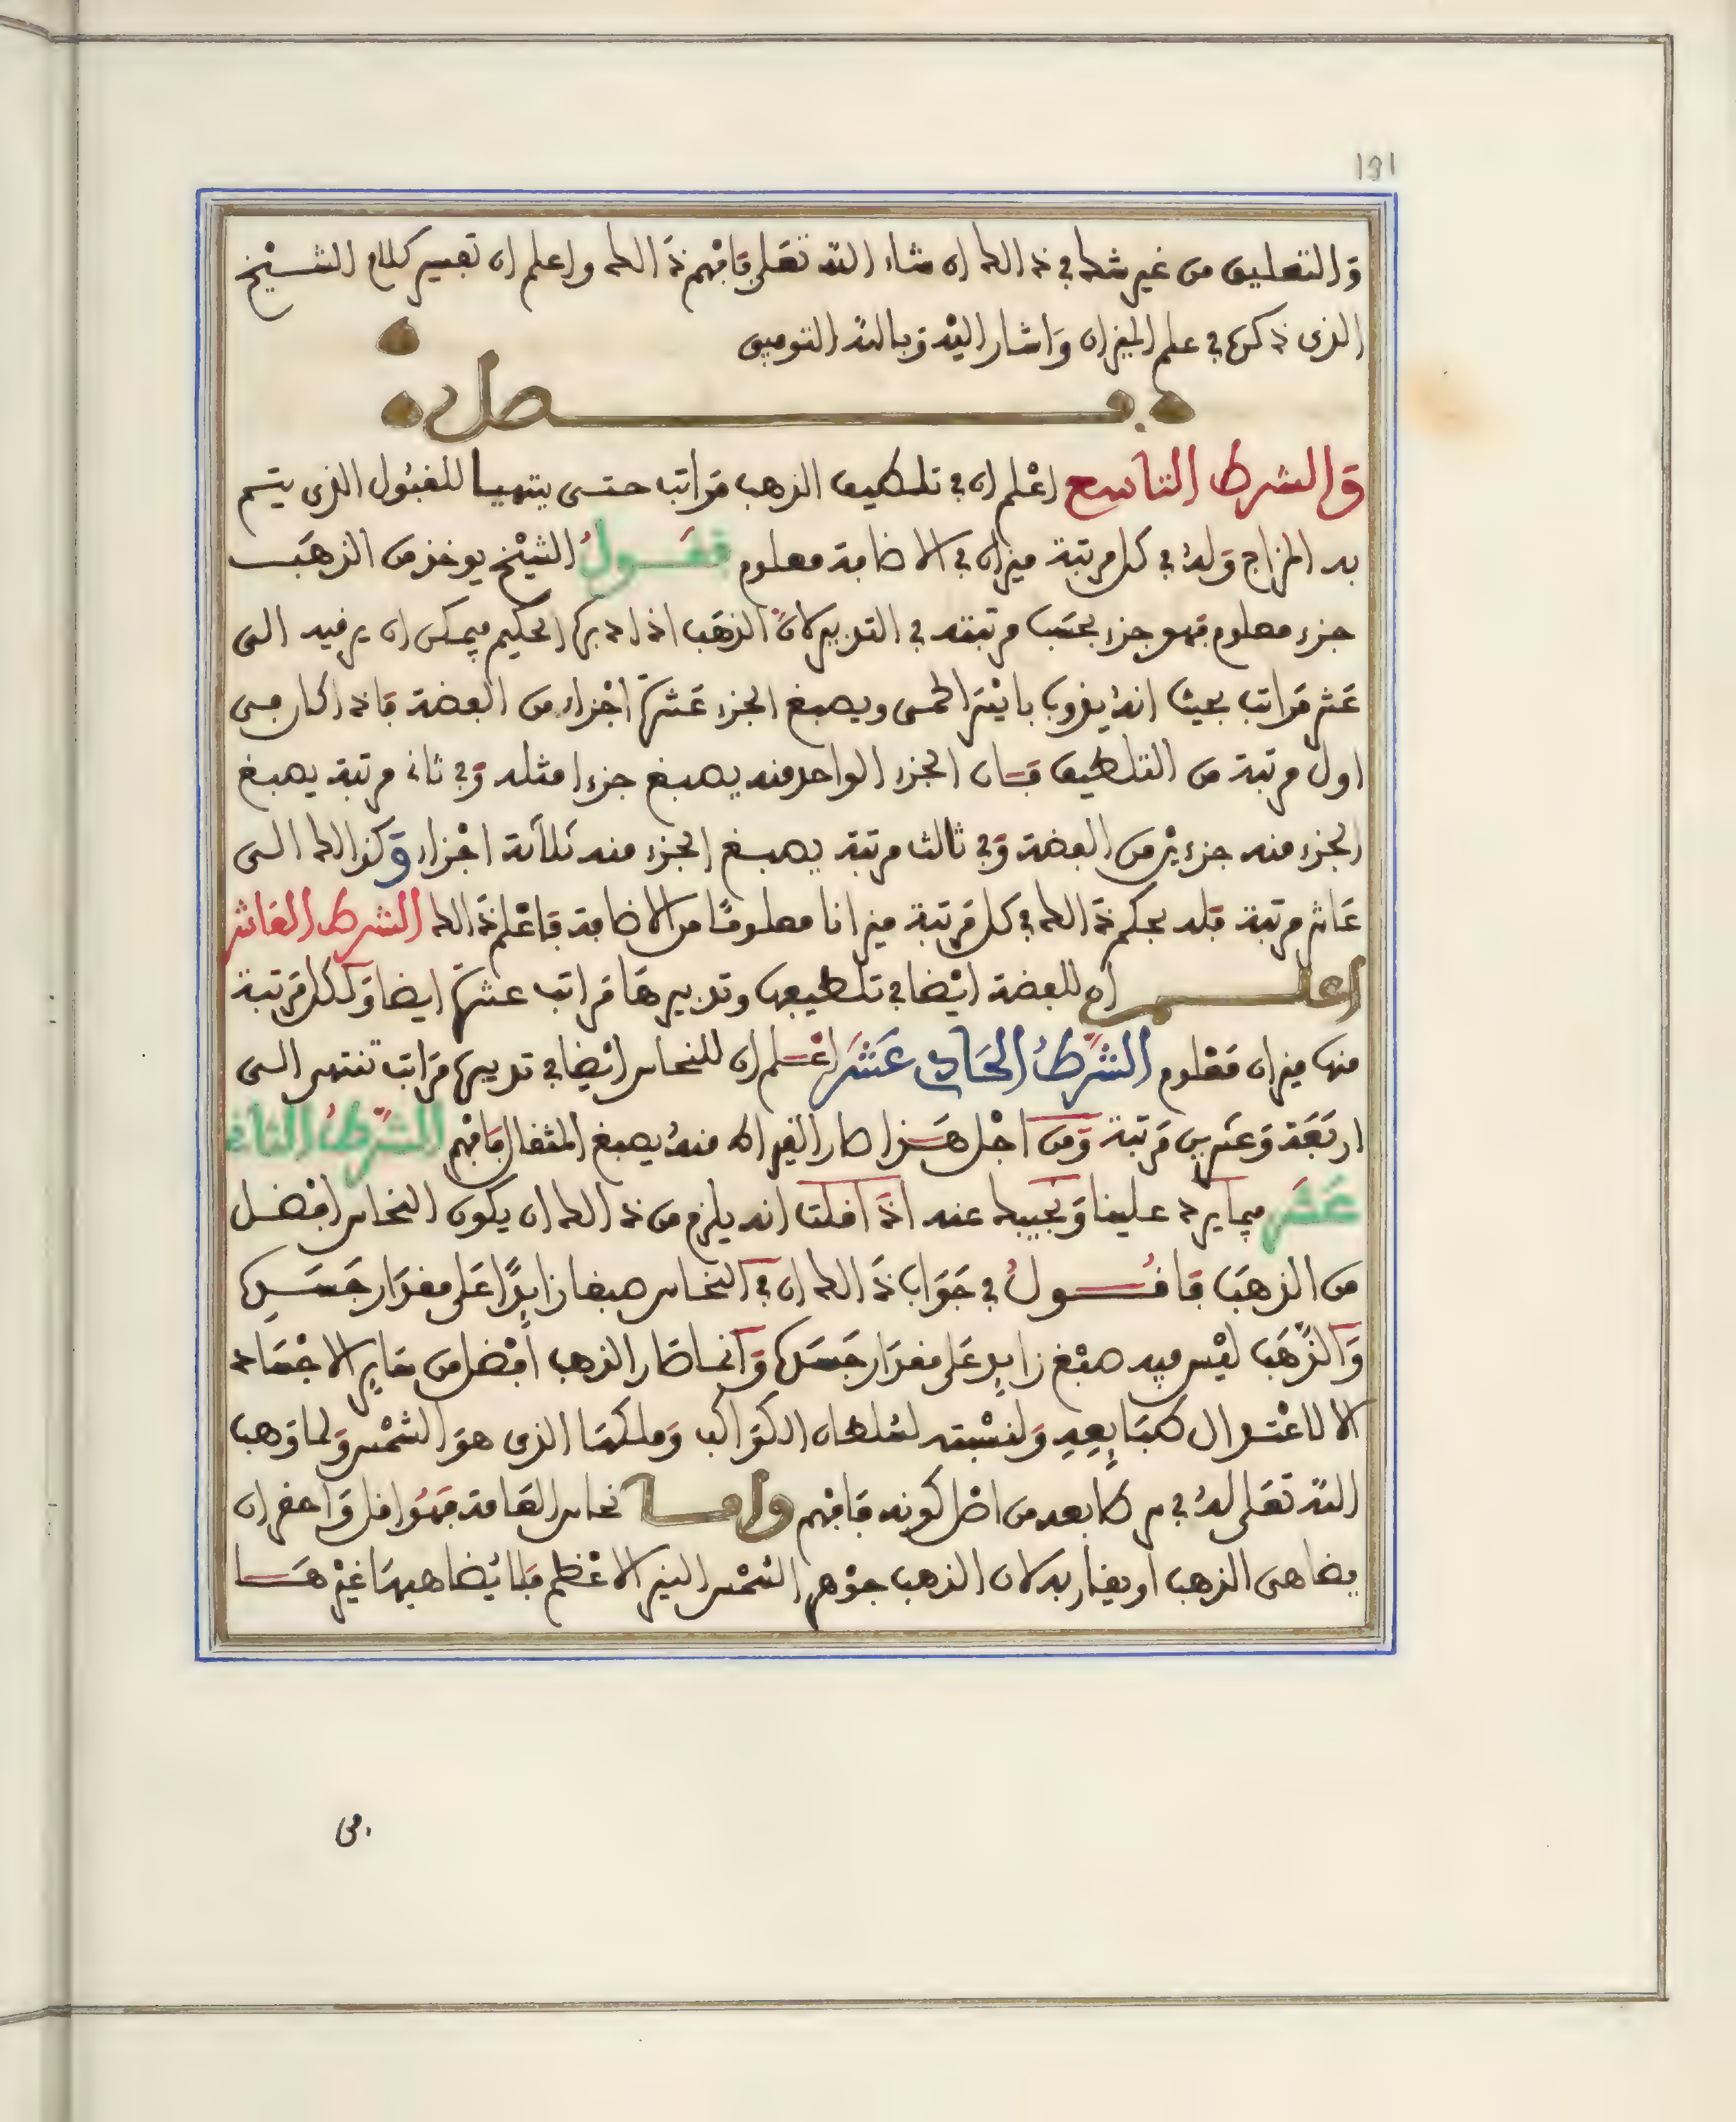 181
والتعليق من غير شك في ذالك ان شاء الله تعلى فافهم ذالك واعلم ان تفسير كلام الشيخ
الذى ذكره في علم الميزان واشار اليه وبالله التوفيق
فصل
والشرط التاسع اعلم ان في تلطيف الذهب مراتب حتى يتهيا للقبول الذى يتم
به المزاج وله في كل مرتبة ميزان في الاضافة معلوم فقول الشيخ يوخذ من الذهب
جزء معلوم فهو جزء بحسب مرتبته في التدبير لان الذهب اذا دبره الحكيم فيمكن ان يرقيه الى
عشر مراتب بحيث انه يذوب بايسر الحمى ويصبغ الجزء عشرة اجزاء من الفضة فاذا كان في
اول مرتبة من التلطيف فان الجزء الواحد منه يصبغ جزءا مثله وفي ثاني مرتبة يصبغ
الجزء منه جزءين من الفضة وفي ثالث مرتبة يصبغ الجزء منه ثلاثة اجزاء وكذالك الى
عاشر مرتبة فله بحكم ذالك في كل مرتبة ميزانا معلوما من الاضافة فاعلم ذالك الشرط العاشر
اعلم ان للفضة ايضا في تلطيفها وتدبيرها مراتب عشرة ايضا ولكل مرتبة
منها ميزان معلوم الشرط الحادى عشر اعلم ان للنحاس ايضا في تدبيره مراتب تنتهي الى
اربعة وعشرين مرتبة ومن اجل هذا صار القيراط منه يصبغ المثقال فافهم الشرط الثاني
عشر فيما يرد علينا ونجيبك عنه اذا قلت انه يلزم من ذالك ان يكون النحاس افضل
من الذهب فاقول في جواب ذالك ان في النحاس صبغا زايدا على مقدار جسده
والذهب ليس فيه صبغ زايد على مقدار جسده وانما صار الذهب افضل من ساير الاجساد
الا لاعتدال طبايعه ولنسبته لسلطان الكواكب وملكها الذى هو الشمس ولما وهب
الله تعلى له في طبعه من اصل كونه فافهم واما نحاس العامة فهو اقل واحقر ان
يضاهى الذهب او يقاربه لان الذهب جوهر الشمس النير الاعظم فلا يضاهيها غيرها
في